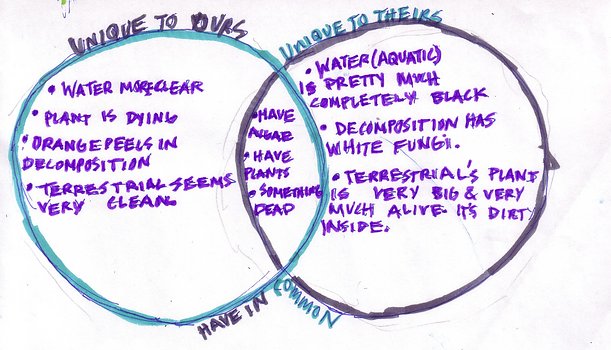 UNIQUE TO OURS
UNIQUE TO THEIRS
• WATER MORE CLEAR
• PLANT IS DYING
• ORANGE PEELS IN
DECOMPOSITION
• TERRESTRIAL SEEMS
VERY CLEAN.
• HAVE
ALGAE
• HAVE
PLANTS
• SOMETHING
DEAD
• WATER (AQUATIC)
IS PRETTY MUCH
COMPLETELY BLACK
• DECOMPOSITION HAS
WHITE FUNGI.
• TERRESTRIAL'S PLANT
IS VERY BIG & VERY
MUCH ALIVE. IT'S DIRTY
INSIDE.
HAVE IN COMMON